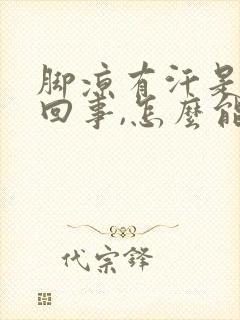 脚凉有汗是
回事,怎麼能
代宗鋒